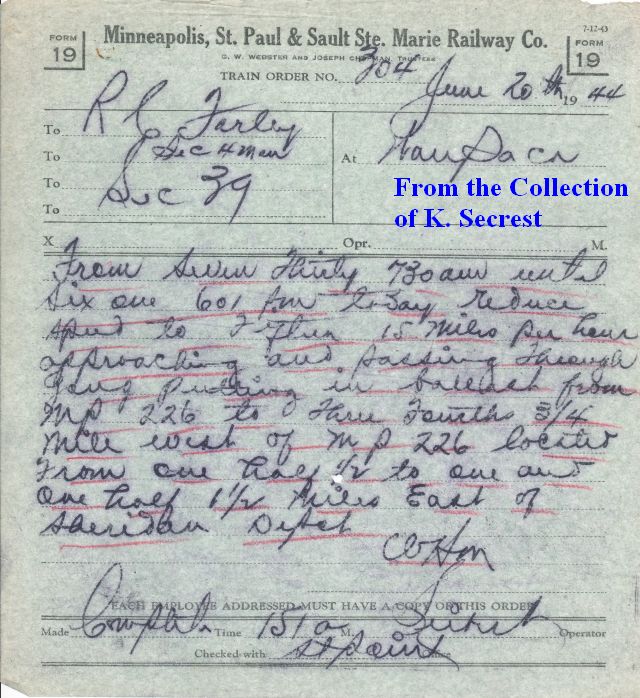 FORM 19
Minneapolis, St. Paul & Sault Ste. Marie Railway Co.
7-12-43
FORM 19
G. W. WEBSTER AND JOSEPH CHAPMAN, TRUSTEES
TRAIN ORDER NO. 304
June 20th 1944
To R C Farley
To Sec 4 Man
To Sec 39
To
At Waupaca
From the Collection
of K. Secrest
X Opr. M.
From Seven Thirty 730 am until
Six one 601 Pm today reduce
speed to Fifteen 15 Miles per hour
approaching and passing through
Gang putting in ballast from
MP 226 to Three Fourths 3/4
Mile west of MP 226 located
From one half 1/2 to one and
one half 1 1/2 Miles East of
Sheridan Depot
EACH EMPLOYEE ADDRESSED MUST HAVE A COPY OF THIS ORDER
Made Complete Time 151 a M. Operator
Checked with St Point